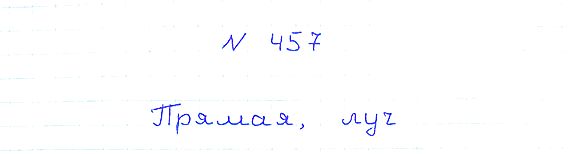 N 457
Прямая, луч